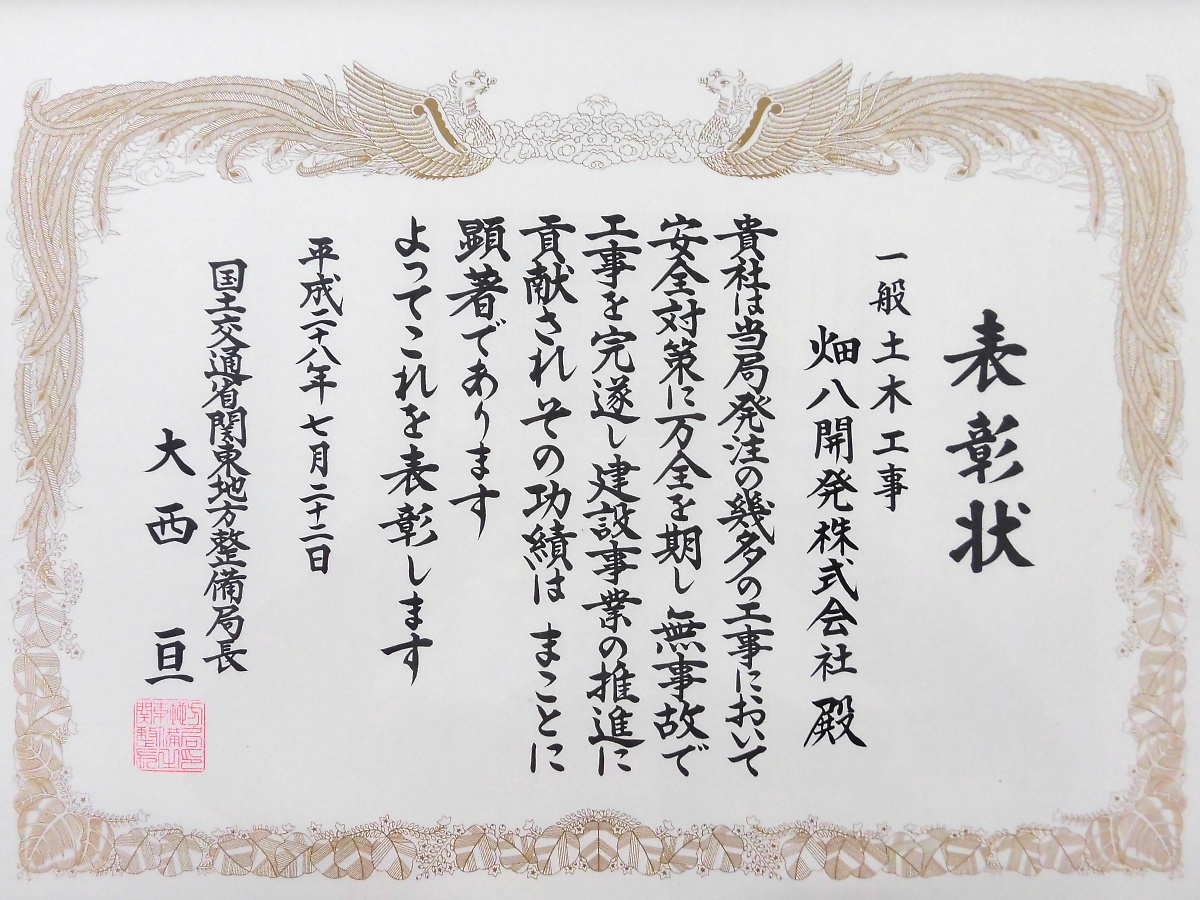 表彰状
一般土木工事
畑八開発株式会社 殿
貴社は当局発注の幾多の工事において
安全対策に万全を期し 無事故で
工事を完遂し建設事業の推進に
貢献されその功績は まことに
顕著であります
よってこれを表彰します
平成二十八年 七月 二十二日
国土交通省関東地方整備局長
大西 亘